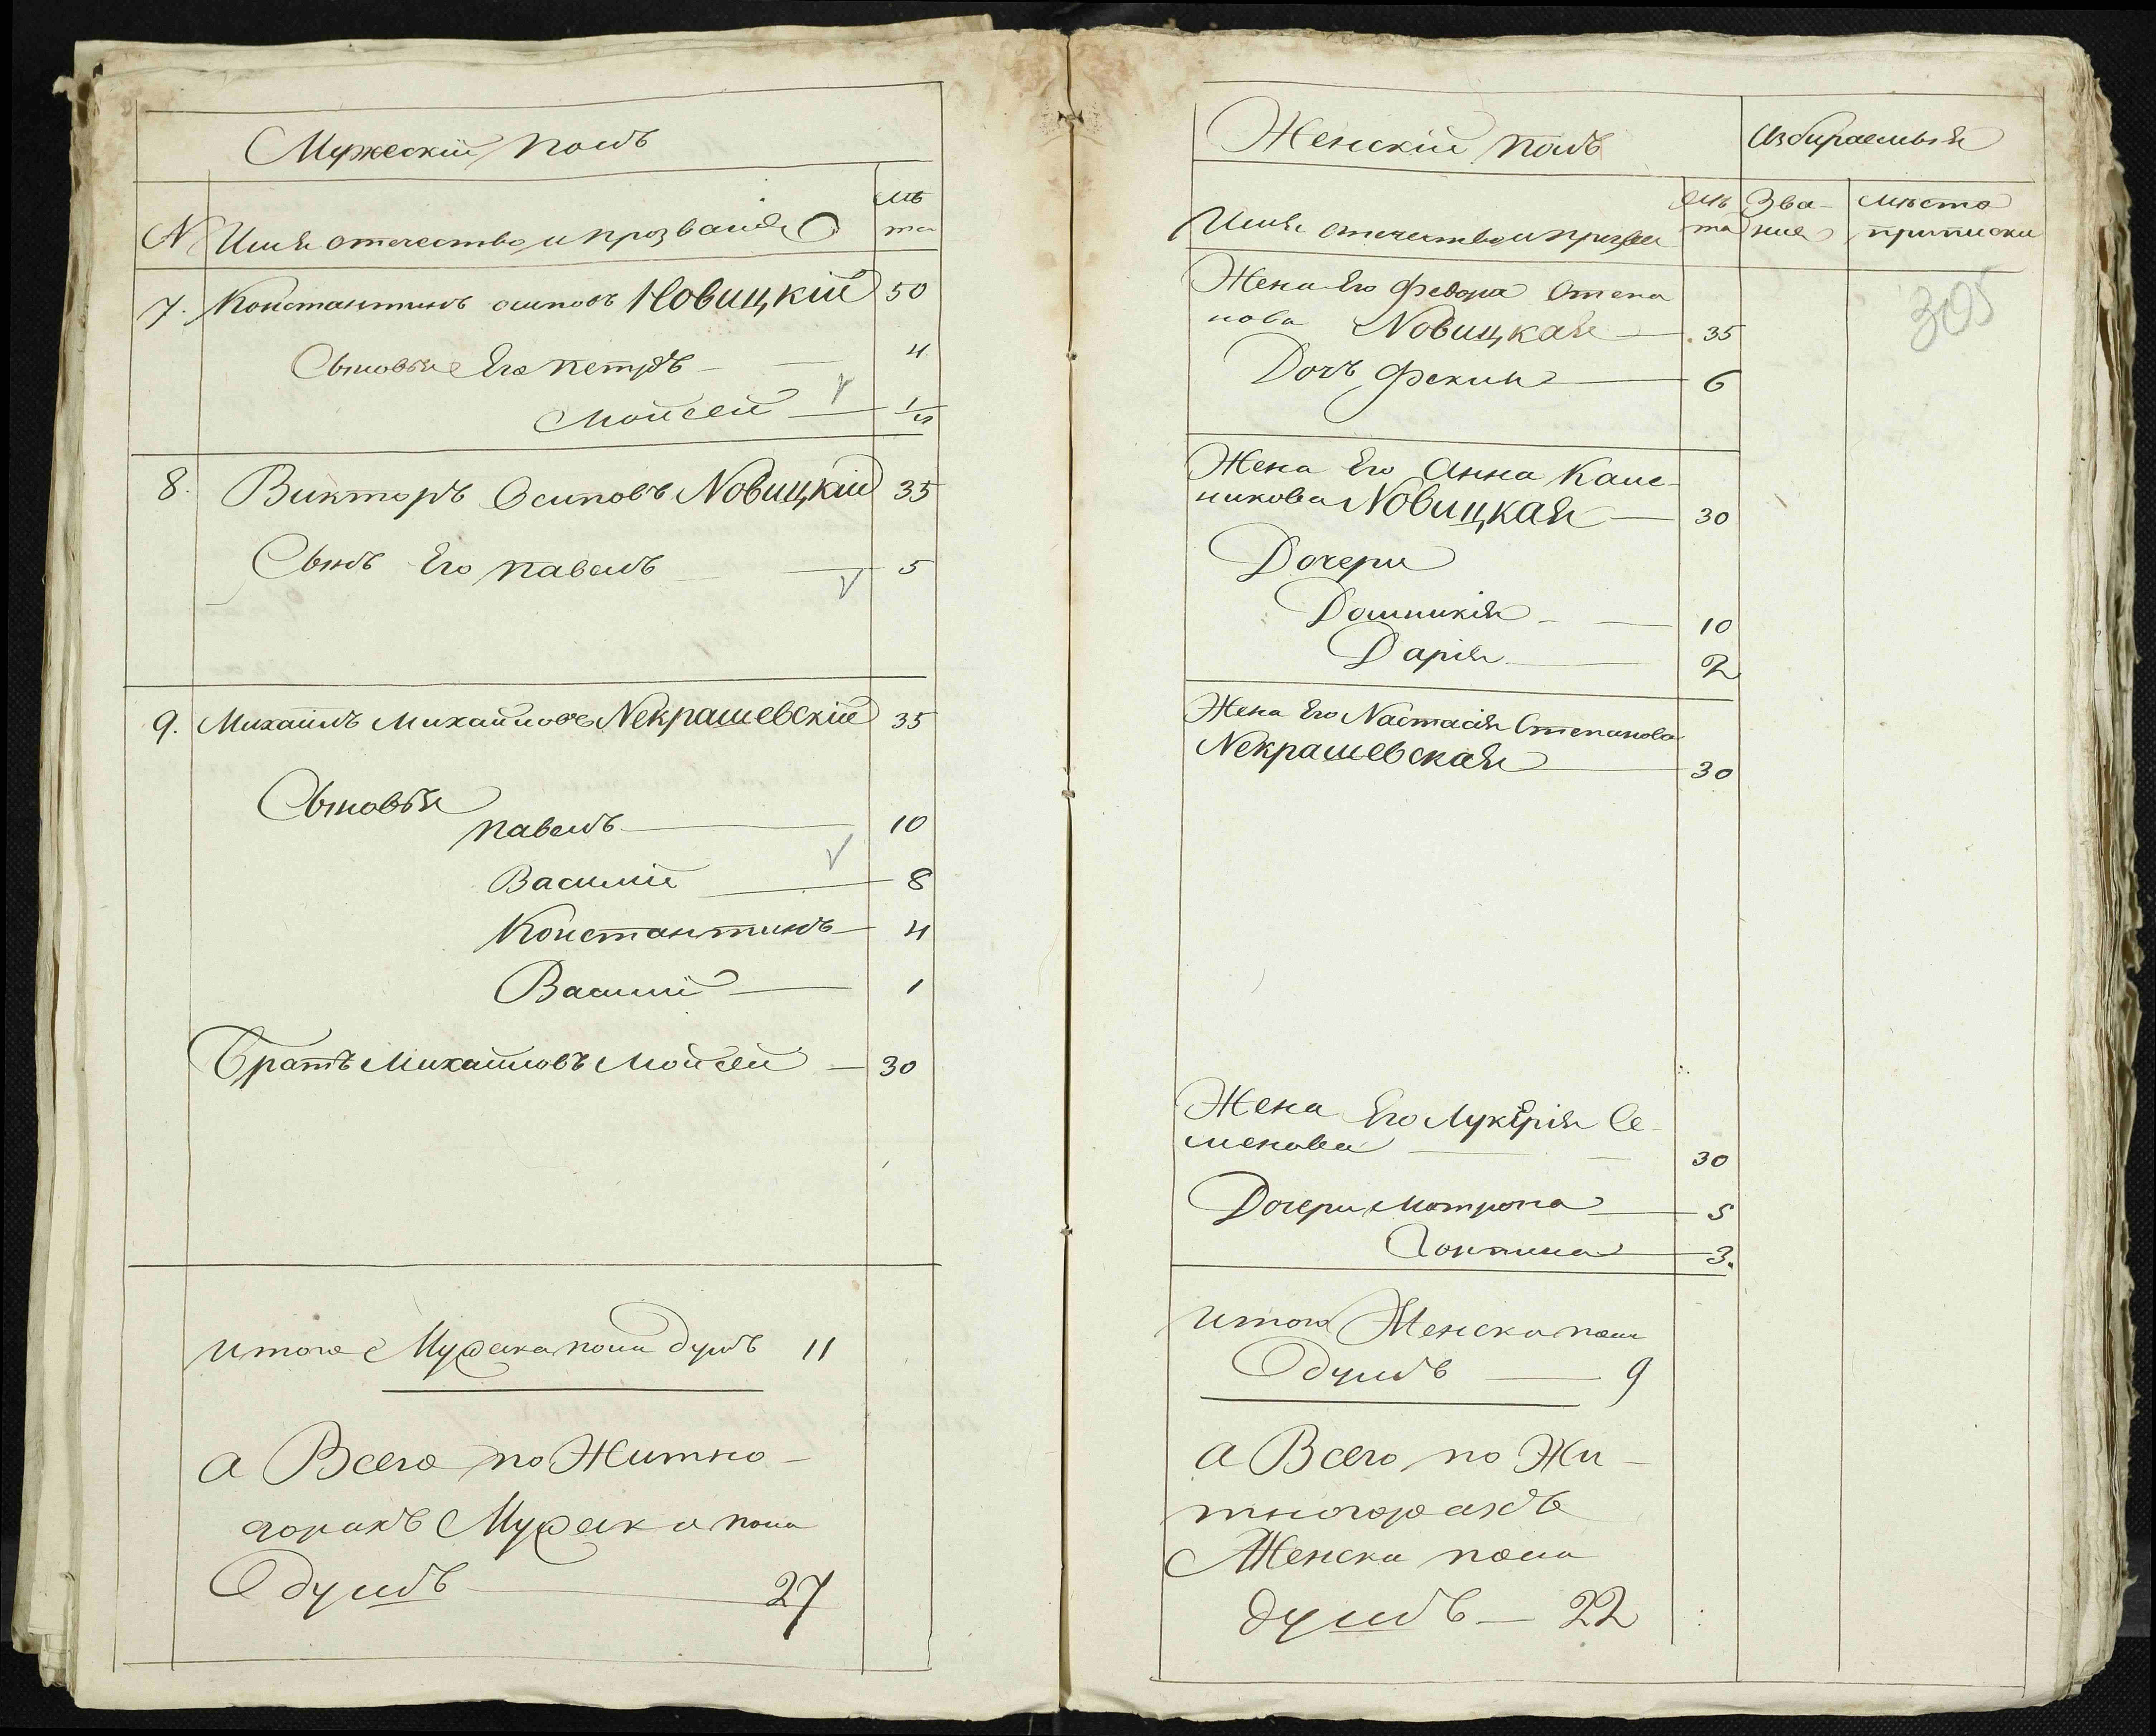 Мужескій полъ
№ Имя отечество и прозваніе
лѣ
та
7. Константинъ осиповъ Новицкій 50
Сыновья Его петръ 4
Мойсей 1/2
8. Викторъ Осиповъ Новицкій 35
Сынъ Его павелъ 5
9. Михаилъ Михайловъ Некрашевскій 35
Сыновья
павелъ 10
Василій 8
Константинъ 4
Василій 1
Братъ Михайловъ Мойсей 30
итого Мужска пола душъ 11
а Всего по Житно-
горахъ Мужска пола
душъ 27
Женскій полъ
Имя отечество и прозван
лѣ
та
Избираемыя
Зва-
ние
мѣсто
приписки
305
Жена Его Федора Степа
нова Новицкая 35
Дочъ Фекла 6
Жена Его Анна
Новицкая 30
Дочери
Домникія 10
Дарія 2
Жена Его Настасія Степанова
Некрашевская 30
Жена Его Лукерія Се-
менова 30
Дочери Матрона 5
3.
итого Женска пола
душъ 9
а Всего по Жи-
тногорахъ
Женска пола
душъ 22